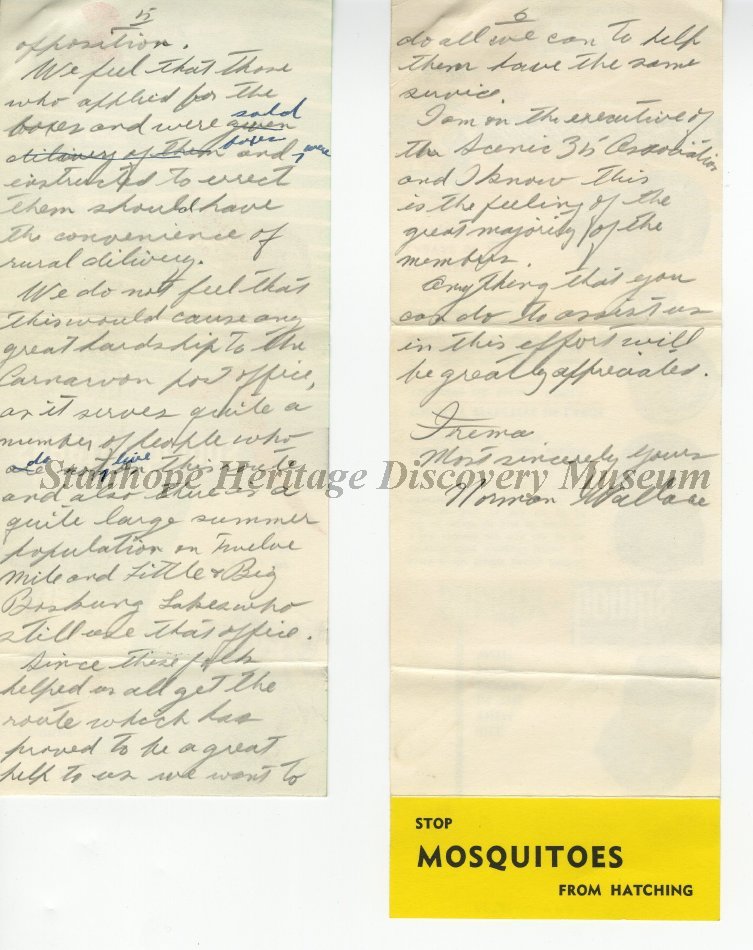 5
opposition.
We feel that those
who applied for the
boxes and were given sold
delivery of them boxes and were
instructed to erect
them should have
the convenience of
rural dilivery.
We do not feel that
this would cause any
great hardship to the
Carnarvon post office,
as it serves quite a
number of people who
do not live on this route
and also there is a
quite large summer
population on Twelve
Mile and Little & Big
Boshung Lakes who
still use that office.
Since these folk
helped us all get the
route which has
proved to be a great
help to us we want to
6
do all we can to help
them have the same
service.
I am on the executive of
the Scenic 35 Association
and I know this
is the feeling of the
great majority of the
members.
Anything that you
can do to assist us
in this effort will
be greatly appreciated.
Most sincerely yours
Norman Wallace
Stanhope Heritage Discovery Museum
STOP
MOSQUITOES
FROM HATCHING